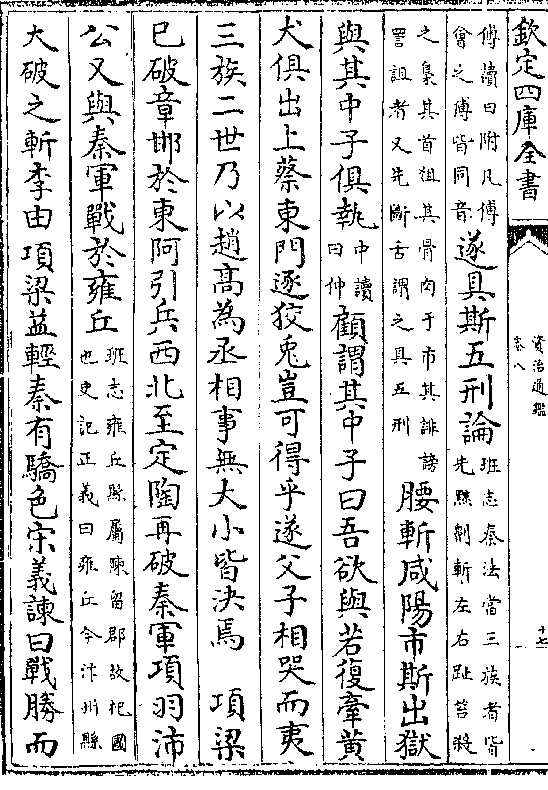 欽定四庫全書
資治通鑑
卷八
十七
傅讀曰附凡傅
會之傅皆同音
遂具斯五刑論
班志秦法當三族者皆
先黥劓斬左右趾笞殺
之梟其首葅其骨肉于市其誹謗
詈詛者又先斷舌謂之具五刑
腰斬咸陽市斯出獄
與其中子俱執
中讀
曰仲
顧謂其中子曰吾欲與若復牽黄
犬俱出上蔡東門逐狡兎豈可得乎遂父子相哭而夷
三族二世乃以趙髙為丞相事無大小皆決焉　項梁
已破章邯於東阿引兵西北至定陶再破秦軍項羽沛
公又與秦軍戰於雍丘
班志雍丘縣屬陳留郡故杞國
也史記正義曰雍丘今汴州縣
大破之斬李由項梁益輕秦有驕色宋義諫曰戰勝而